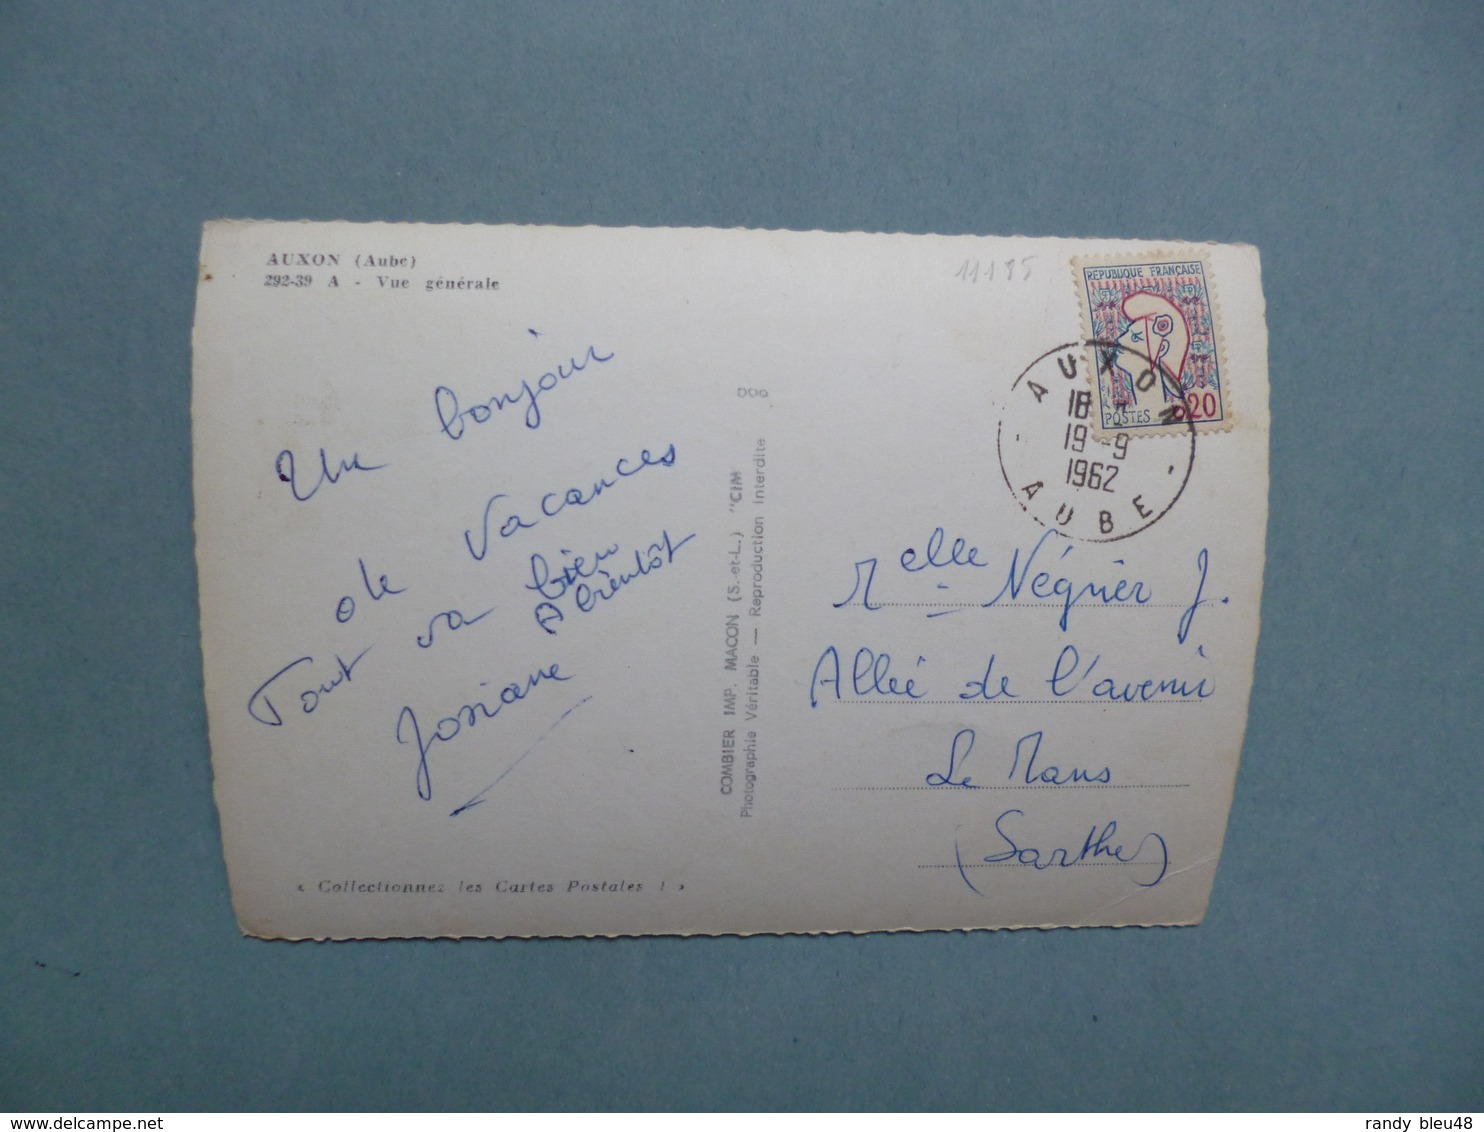 AUXON (Aube)
292-39 A - Vue générale
11185
REPUBLIQUE FRANÇAISE
POSTES 0,20
AUXON
18
19-9
1962
AUBE
Un bonjour
de Vacances
Tout va bien
A bientôt
Josiane
COMBIER IMP. MACON (S.-et-L.) "CIM"
Photographie Véritable — Reproduction Interdite
Melle Négrier J.
Allée de l'avenir
Le Mans
(Sarthe)
« Collectionnez les Cartes Postales ! »
randy bleu48